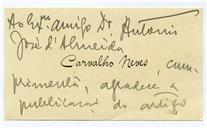 Ao Exmo. amigo Dr. Antonio
José d'Almeida
Carvalho Neves, cum-
primenta, agradece a
publicação do artigo